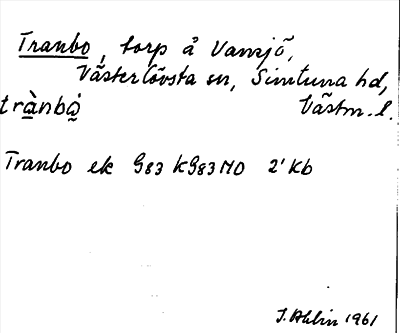 Tranbo, torp å Vansjö,
Västerlövsta sn, Simtuna hd,
trànbò̤ Västm. l.
Tranbo ek G83 KG83NO 2' Kb
I. Ahlin 1961